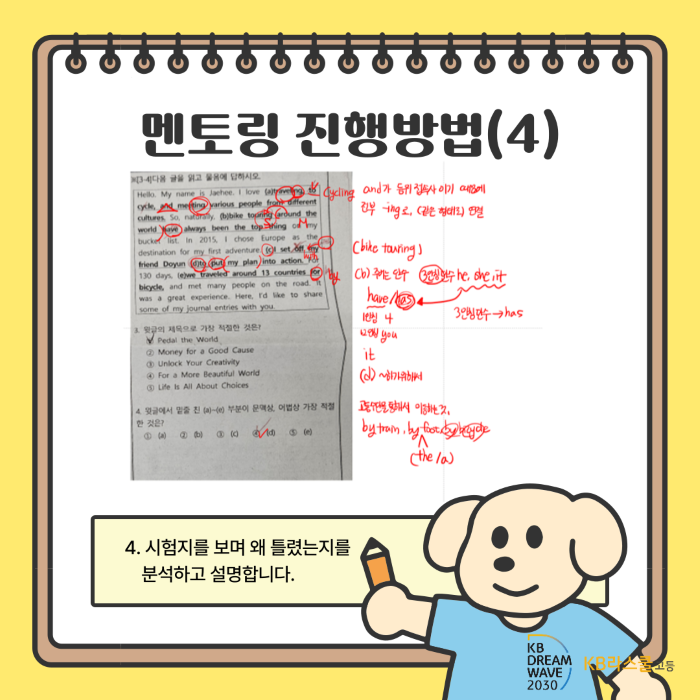 멘토링 진행방법(4)
※[3-4]다음 글을 읽고 물음에 답하시오.
Hello. My name is Jaehee. I love (a)traveling to
cycle, and meeting various people from different
cultures. So, naturally, (b)bike touring around the
world have always been the top thing on my
bucket list. In 2015, I chose Europe as the
destination for my first adventure. (c)I set off my
friend Doyun (d)to put my plan into action. For
130 days, (e)we traveled around 13 countries for
bicycle, and met many people on the road. It
was a great experience. Here, I'd like to share
some of my journal entries with you.
3. 윗글의 제목으로 가장 적절한 것은?
① Pedal the World
② Money for a Good Cause
③ Unlock Your Creativity
④ For a More Beautiful World
⑤ Life Is All About Choices
4. 윗글에서 밑줄 친 (a)~(e) 부분이 문맥상, 어법상 가장 적절
한 것은?
① (a) ② (b) ③ (c) ④ (d) ⑤ (e)
cycling
with
by
and가 등위 접속사이기 때문에
전부 -ing로, (같은 형태로) 연결
(bike touring)
(b) 주어는 단수 3인칭단수 he, she, it
have/has
3인칭단수 → has
1인칭
2인칭 you
it
(d) ~하기위해서
by train, by foot, by bicycle
(the/a)
4. 시험지를 보며 왜 틀렸는지를
분석하고 설명합니다.
KB
DREAM
WAVE
2030
KB라스쿨고등